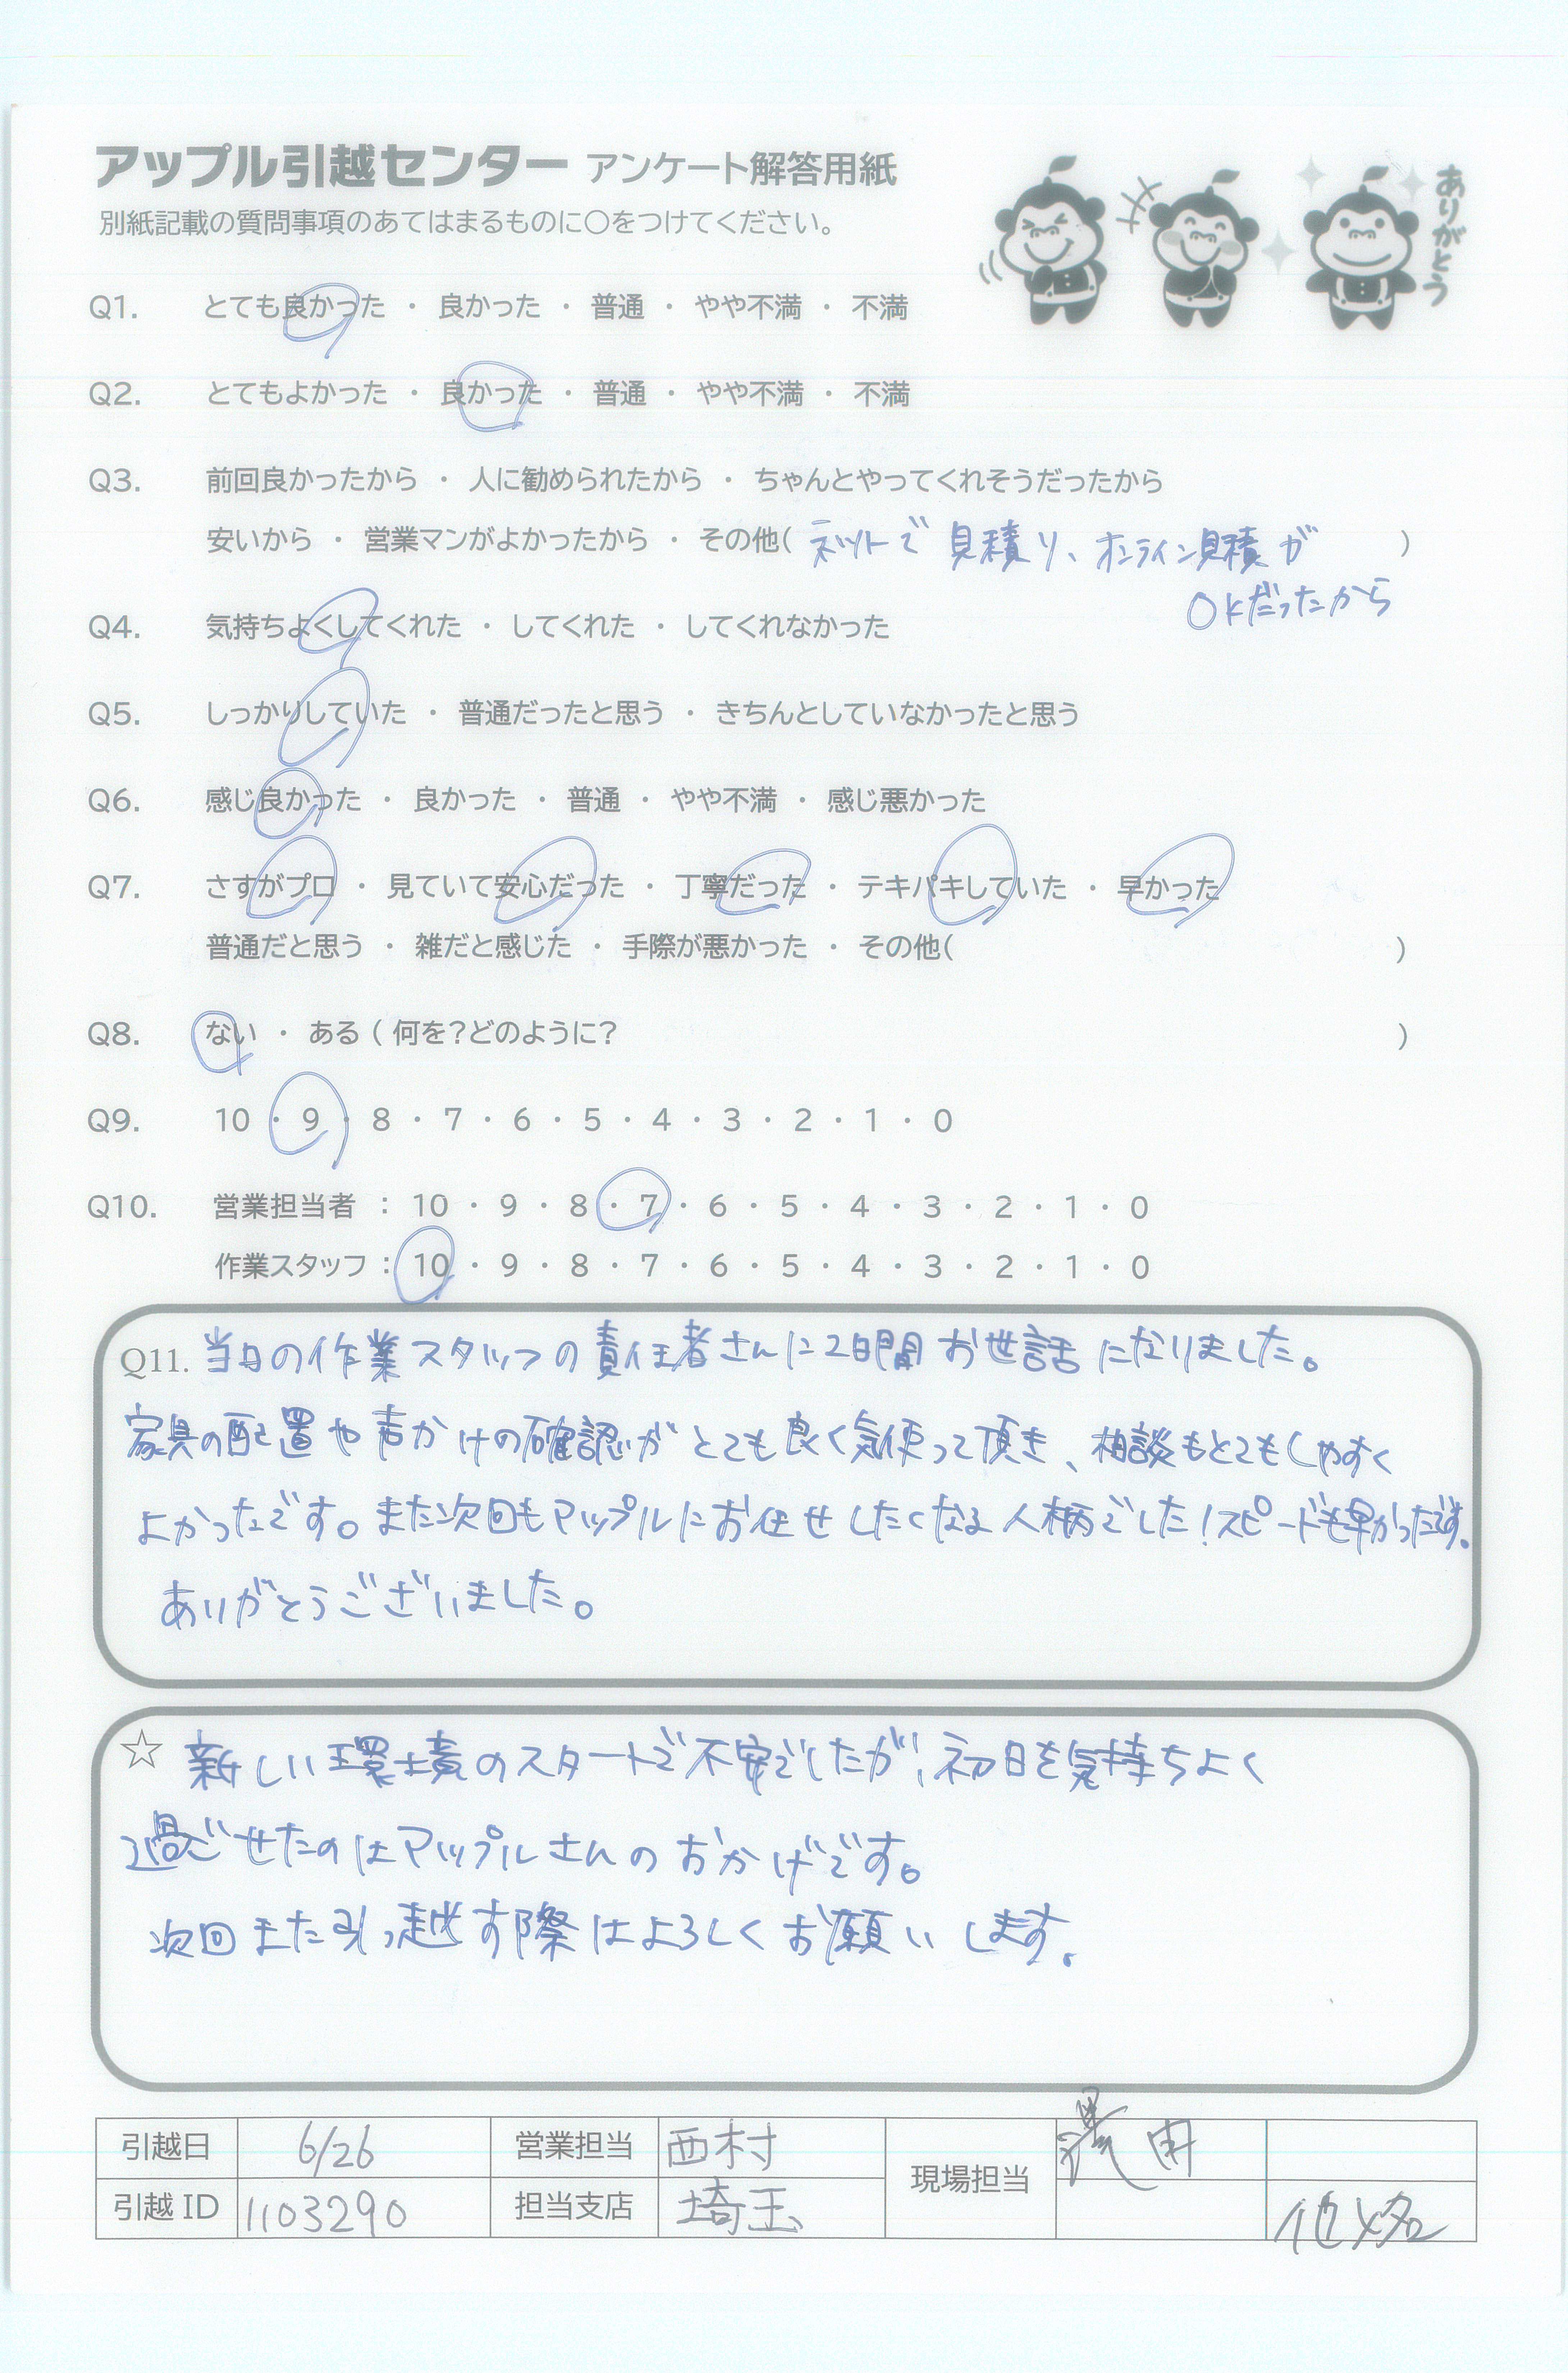 アップル引越センター アンケート解答用紙
別紙記載の質問事項のあてはまるものに〇をつけてください。
ありがとう
Q1. とても良かった ・ 良かった ・ 普通 ・ やや不満 ・ 不満
Q2. とてもよかった ・ 良かった ・ 普通 ・ やや不満 ・ 不満
Q3. 前回良かったから ・ 人に勧められたから ・ ちゃんとやってくれそうだったから
安いから ・ 営業マンがよかったから ・ その他( ネットで見積り、オンライン見積が )
OKだったから
Q4. 気持ちよくしてくれた ・ してくれた ・ してくれなかった
Q5. しっかりしていた ・ 普通だったと思う ・ きちんとしていなかったと思う
Q6. 感じ良かった ・ 良かった ・ 普通 ・ やや不満 ・ 感じ悪かった
Q7. さすがプロ ・ 見ていて安心だった ・ 丁寧だった ・ テキパキしていた ・ 早かった
普通だと思う ・ 雑だと感じた ・ 手際が悪かった ・ その他( )
Q8. ない ・ ある ( 何を?どのように? )
Q9. 10 ・ 9 ・ 8 ・ 7 ・ 6 ・ 5 ・ 4 ・ 3 ・ 2 ・ 1 ・ 0
Q10. 営業担当者 : 10 ・ 9 ・ 8 ・ 7 ・ 6 ・ 5 ・ 4 ・ 3 ・ 2 ・ 1 ・ 0
作業スタッフ : 10 ・ 9 ・ 8 ・ 7 ・ 6 ・ 5 ・ 4 ・ 3 ・ 2 ・ 1 ・ 0
Q11. 当日の作業スタッフの責任者さんに2日間お世話になりました。
家具の配置や声かけの確認がとても良く気使って頂き、相談もとてもしやすく
よかったです。また次回もアップルにお任せしたくなる人柄でした!スピードも早かったです。
ありがとうございました。
☆ 新しい環境のスタートで不安でしたが、初日を気持ちよく
過ごせたのはアップルさんのおかげです。
次回また引っ越す際はよろしくお願いします。
引越日 6/26 営業担当 西村 現場担当
引越ID 1103290 担当支店 埼玉